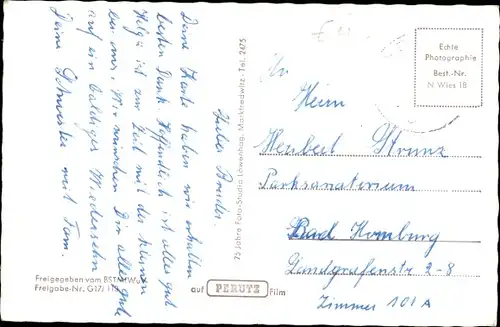 Lieber Bruder,
Deine Karte haben wir erhalten
besten Dank. Hoffentlich ist alles gut
Helga ist zur Zeit mit der kleinen
bei uns. Wir wünschen Dir alles gute
auf ein baldiges Wiedersehn
Deine Schwester mit Fam.
25 Jahre Foto-Studio Löwenhag, Marktredwitz - Tel. 2475
Freigegeben vom BSTMfWuV
Freigabe-Nr. G17/
auf PERUTZ Film
Echte
Photographie
Best.-Nr.
N Wies 18
An
Herrn
Heribert Strunz
Parksanatorium
Bad Homburg
Landgrafenstr 2-8
Zimmer 101 A